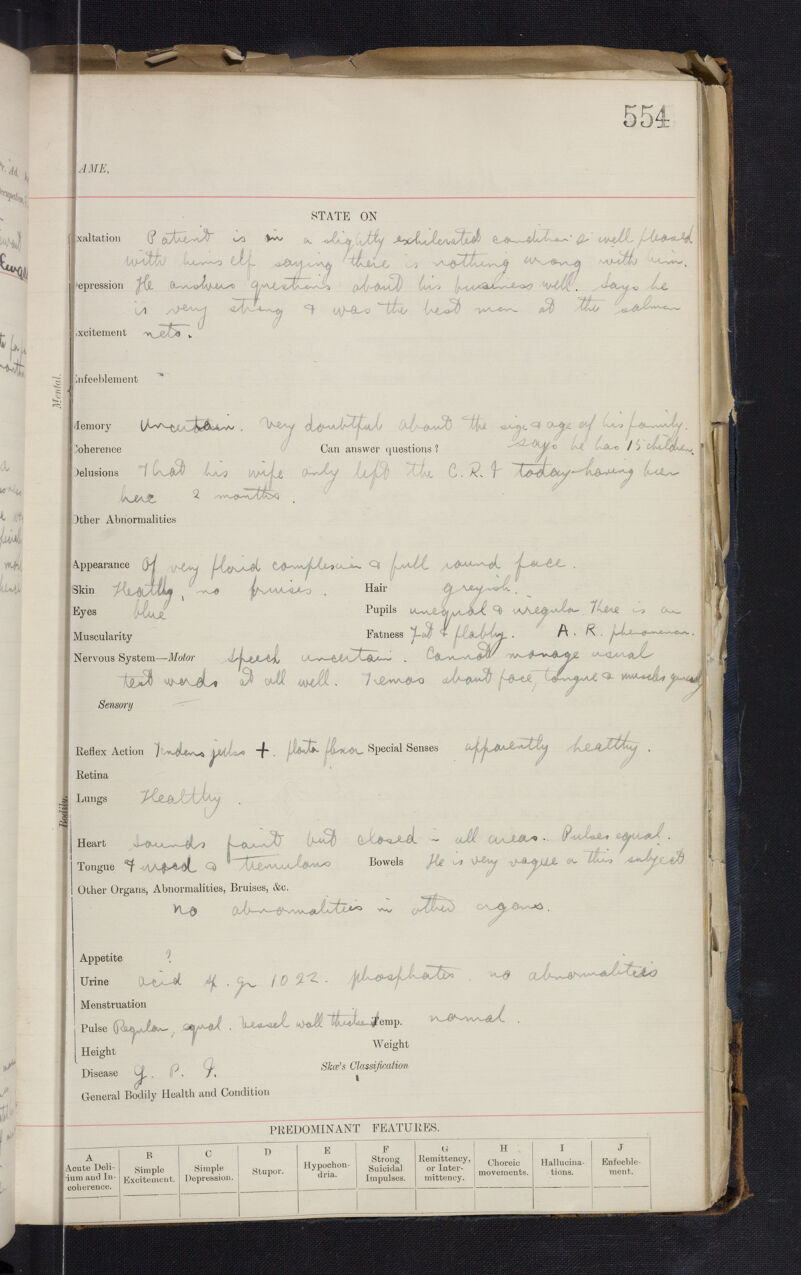 554
AME,
STATE ON
xaltation Patient is in a slightly exhilerated condition & well pleased
with himself saying there is nothing wrong with him.
epression He answers questions about his business well. Says he
is very strong & was the best man at the salmon
xcitement nets.
nfeeblement
Mental.
Memory Uncertain. Very doubtful about the size & age of his family.
Coherence Can answer questions? says he has 15 children.
Delusions That his wife only left the C. R. I today having been
here 2 months.
Other Abnormalities
Appearance Of very florid complexion & full round face.
Skin Healthy, no bruises. Hair greyish.
Eyes blue Pupils unequal & irregular There is an
Muscularity Fatness Fat & flabby. A. R. phenomenon.
Nervous System—Motor Speech uncertain. Cannot manage usual
test words at all well. Tremors about face, tongue & muscles
Sensory
Reflex Action Tendon jerks +. plantar flexor Special Senses apparently healthy.
Retina
Bodily.
Lungs Healthy.
Heart Sounds faint but closed in all areas. Pulses equal.
Tongue & tremulous Bowels He is very vague on this subject
Other Organs, Abnormalities, Bruises, &c.
no abnormalities in other organs.
Appetite ?
Urine acid sp. gr 1022. phosphates. no abnormalities
Menstruation
Pulse Regular, equal. Vessel wall Temp. normal.
Height Weight
Disease G. P. I. Skæ's Classification
General Bodily Health and Condition
PREDOMINANT FEATURES.
A B C D E F G H I J
Acute Delirium and Incoherence. Simple Excitement. Simple Depression. Stupor. Hypochondria. Strong Suicidal Impulses. Remittency, or Intermittency. Choreic movements. Hallucinations. Enfeeblement.